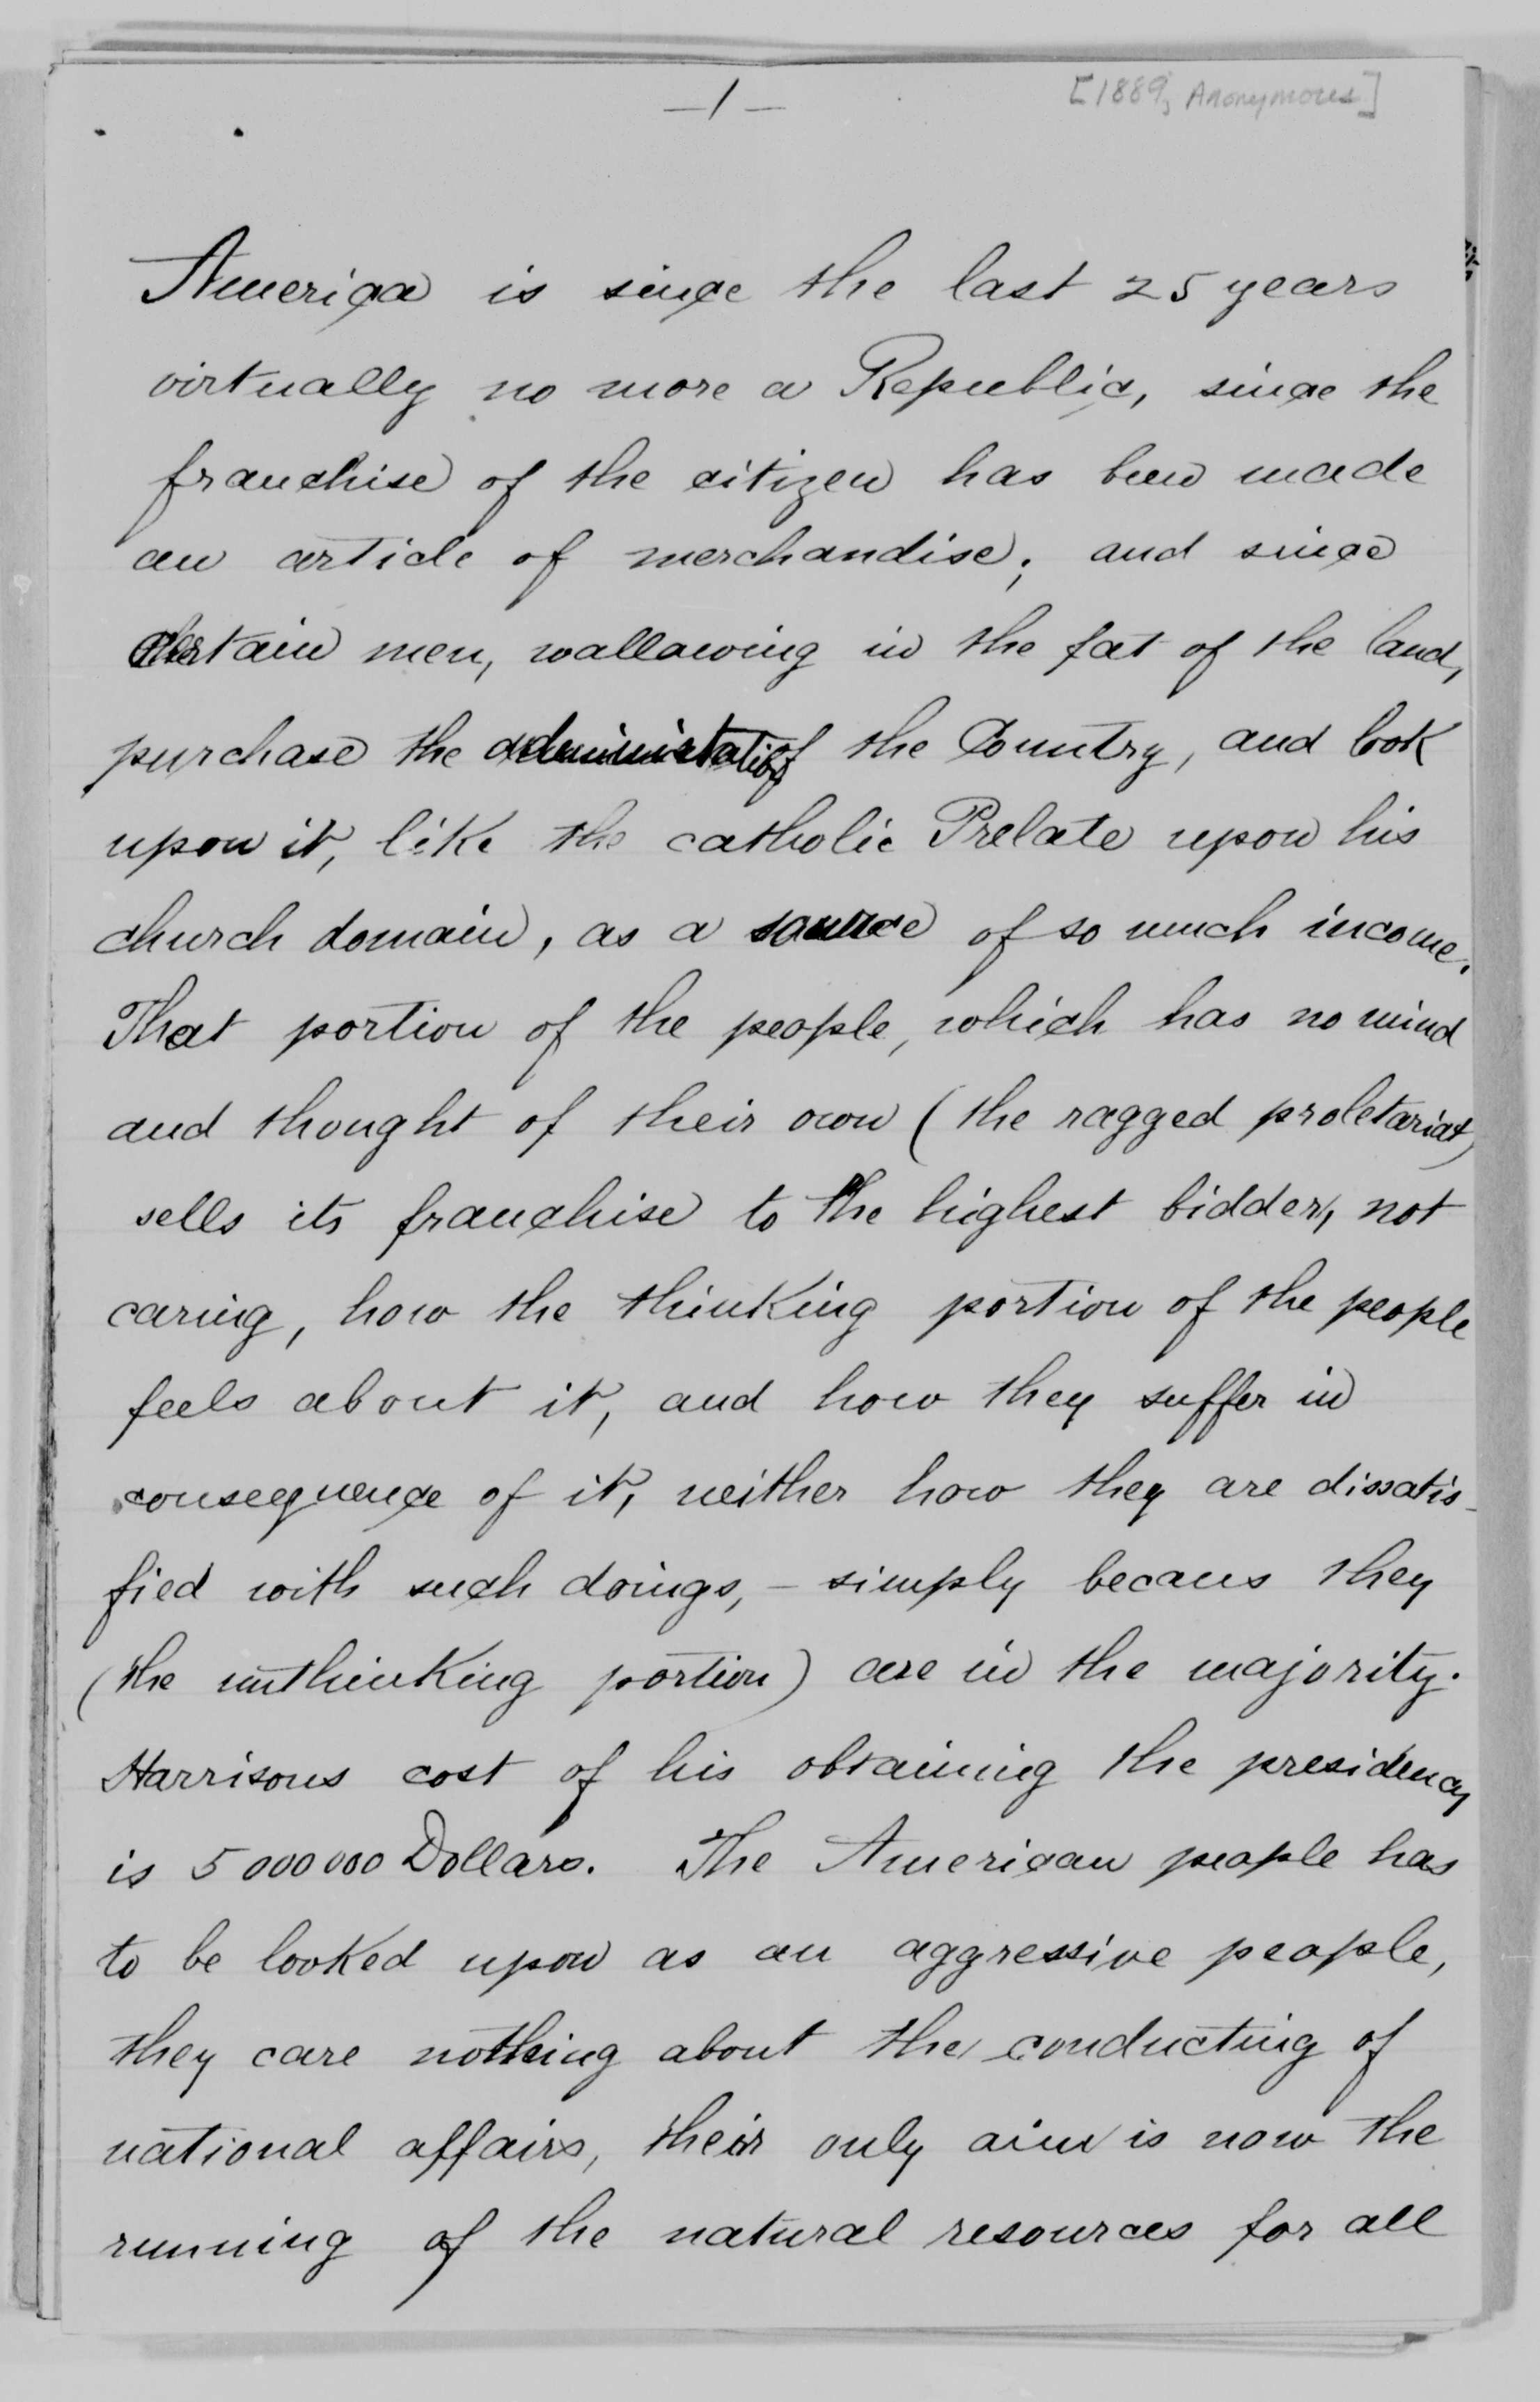 —1—
[1889, Anonymous]
America is since the last 25 years
virtually no more a Republic, since the
franchise of the citizen has been made
an article of merchandise; and since
certain men, wallowing in the fat of the land,
purchase the of the Country, and look
upon it, like the catholic Prelate upon his
church domain, as a source of so much income.
That portion of the people, which has no mind
and thought of their own (the ragged proletariat)
sells its franchise to the highest bidder, not
caring, how the thinking portion of the people
feels about it, and how they suffer in
consequence of it, neither how they are dissatis-
fied with such doings, – simply becaus they
(the unthinking portion) are in the majority.
Harrisons cost of his obtaining the presidency
is 5 000 000 Dollars. The American people has
to be looked upon as an aggressive people,
they care nothing about the conducting of
national affairs, their only aim is now the
running of the natural resources for all